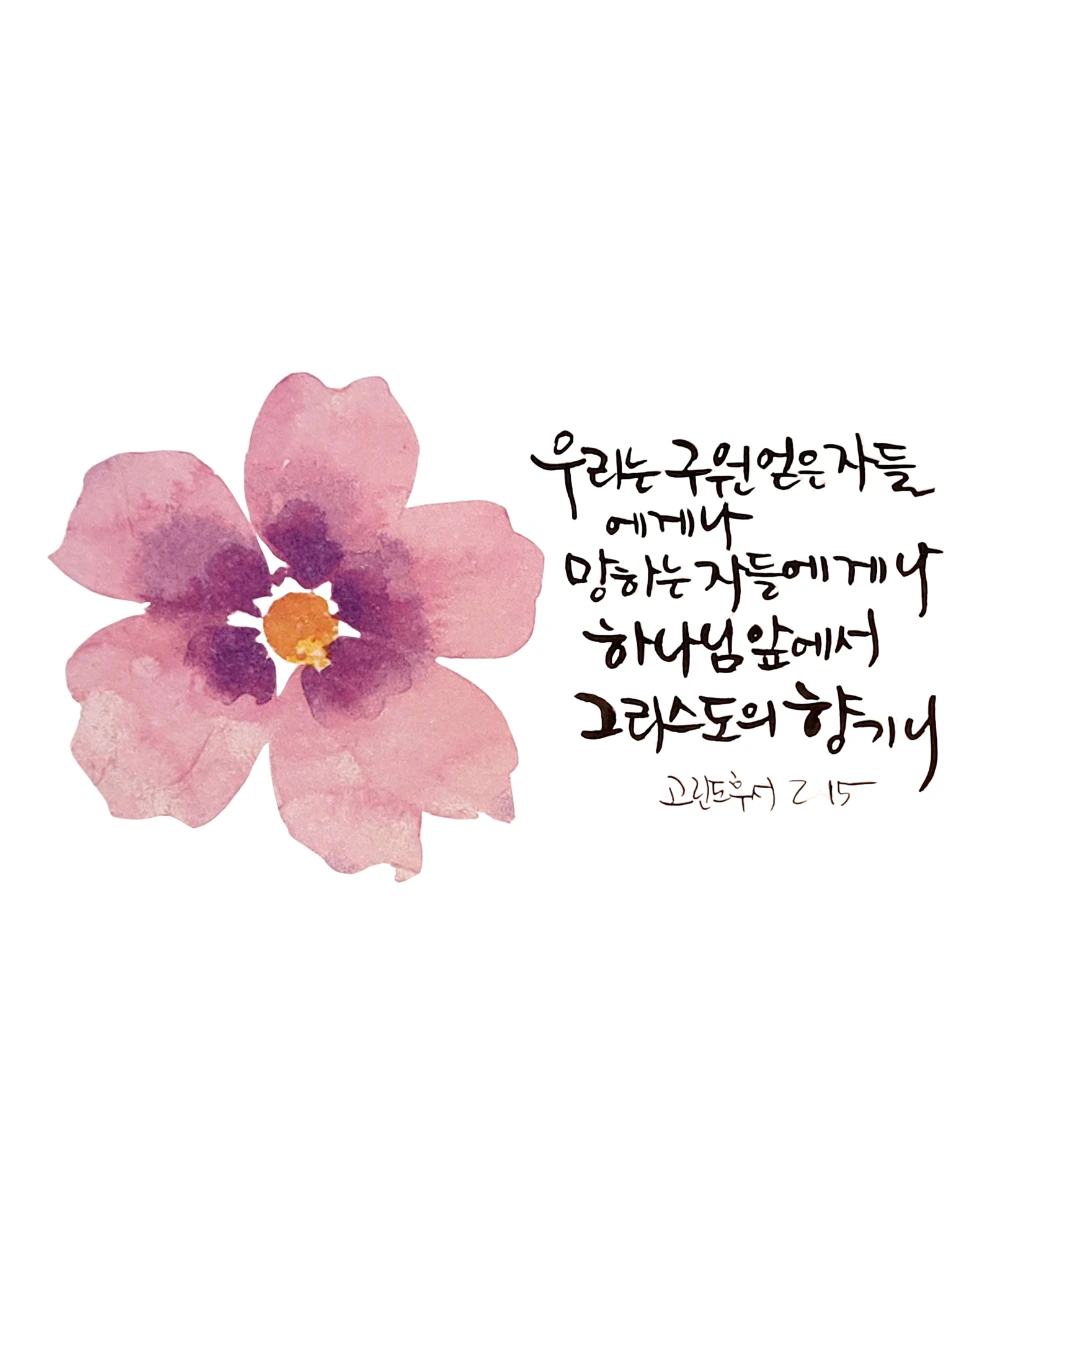 우리는 구원 얻은 자들
에게나
망하는 자들에게나
하나님 앞에서
그리스도의 향기니
고린도후서 2 15